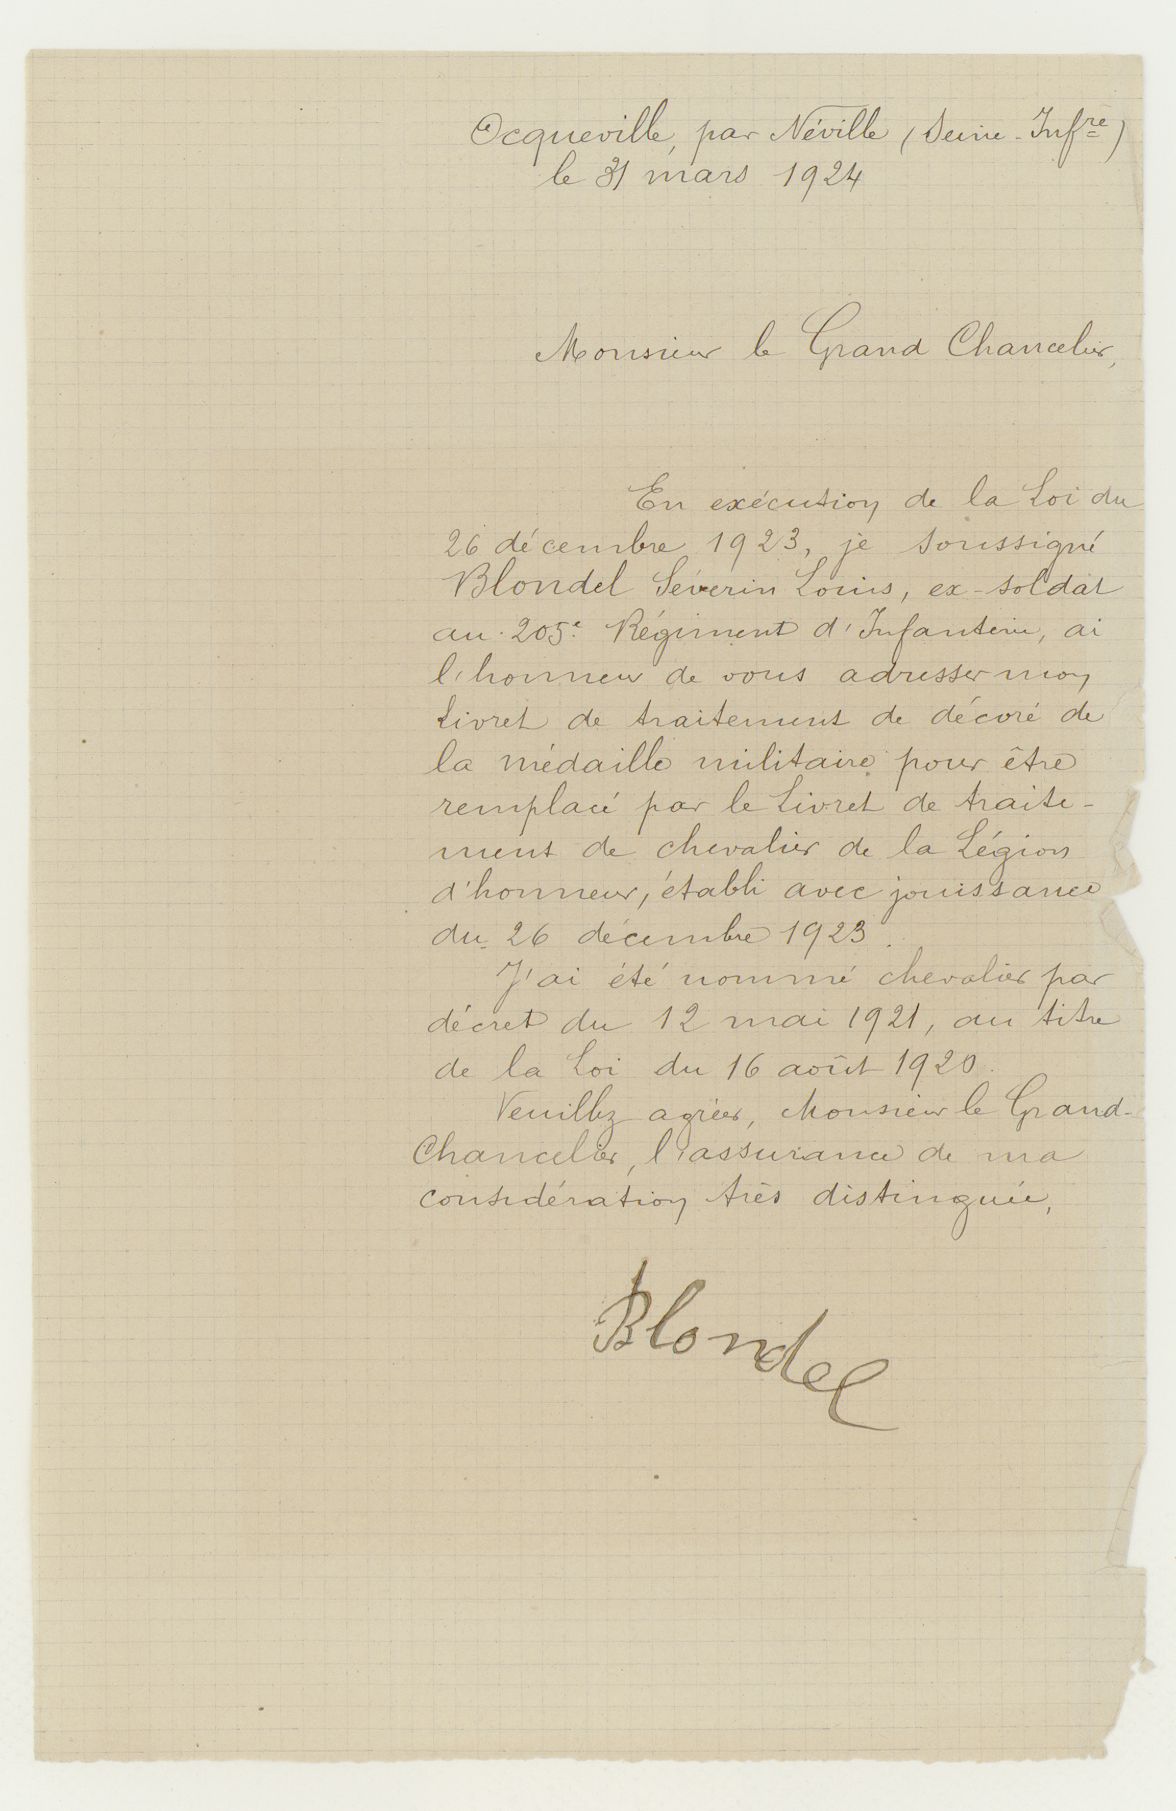 Ocqueville, par Néville (Seine-Infre)
le 31 mars 1924
Monsieur le Grand Chancelier,
En exécution de la Loi du
26 décembre 1923, je soussigné
Blondel Séverin Louis, ex-soldat
au 205e Régiment d'Infanterie, ai
l'honneur de vous adresser mon
Livret de traitement de décoré de
la médaille militaire pour être
remplacé par le Livret de traite-
ment de chevalier de la Légion
d'honneur, établi avec jouissance
du 26 décembre 1923.
J'ai été nommé chevalier par
décret du 12 mai 1921, au titre
de la Loi du 16 août 1920.
Veuillez agréer, Monsieur le Grand-
Chancelier, l'assurance de ma
considération très distinguée,
Blondel